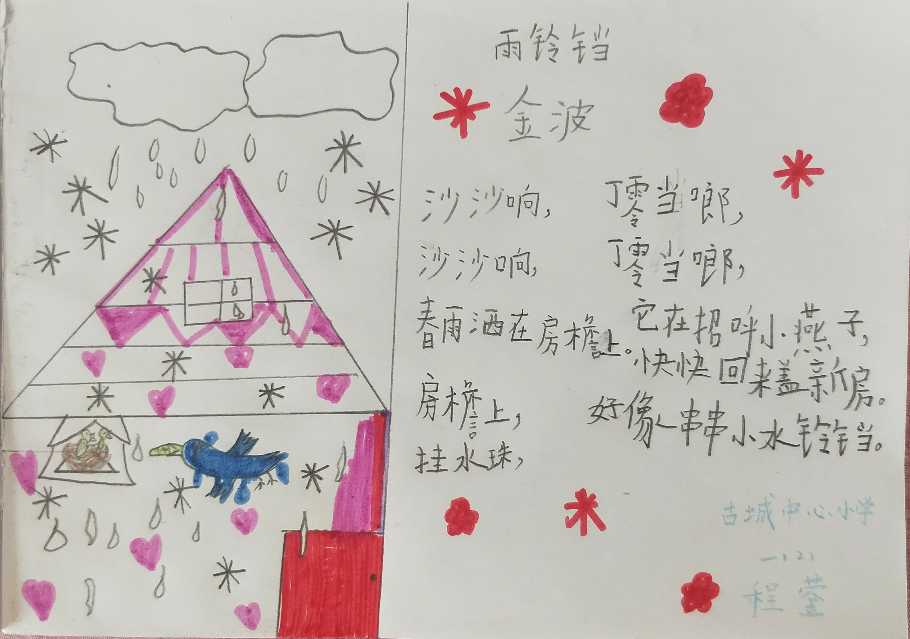 雨铃铛
金波
沙沙响,
沙沙响,
春雨洒在房檐上。
房檐上,
挂水珠,
好像串串小水铃铛。
丁零当啷,
丁零当啷,
它在招呼小燕子,
快快回来盖新房。
古城中心小学
一(2)
程